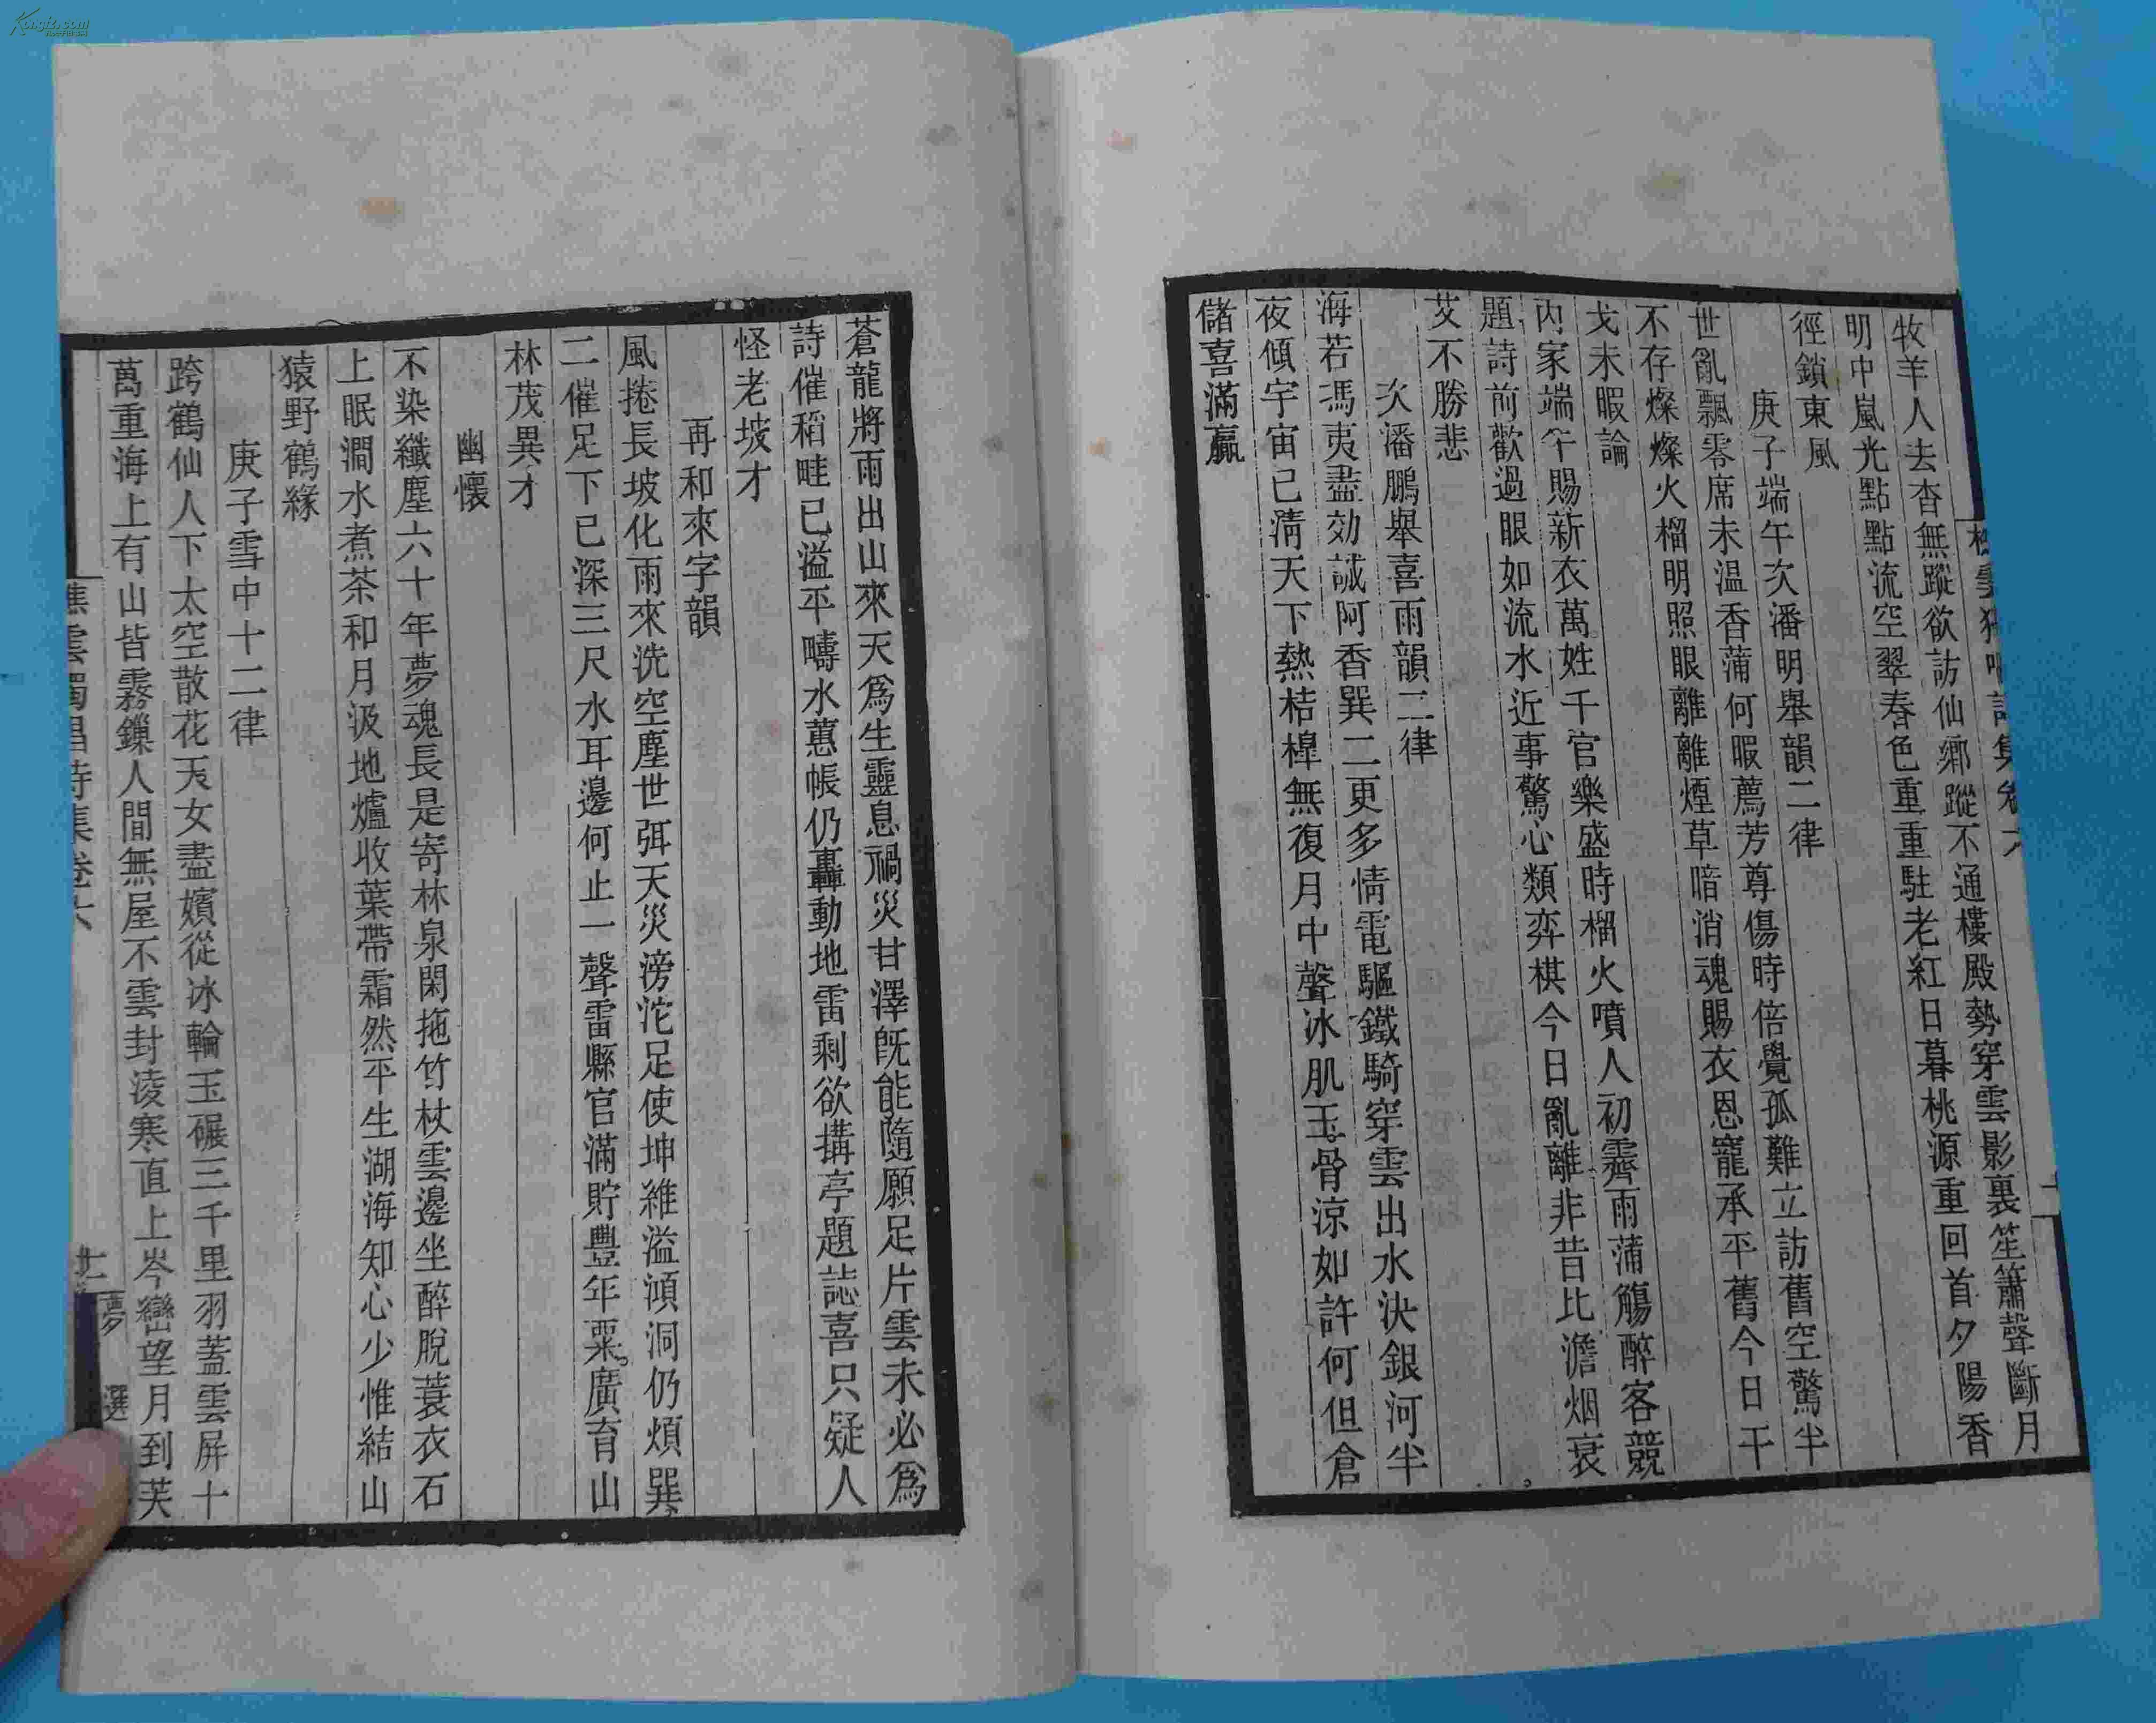 牧羊人去杳無蹤欲訪仙鄉蹤不通樓殿勢穿雲影裏笙簫聲斷月
明中嵐光點點流空翠春色重重駐老紅日暮桃源重回首夕陽香
徑鎖東風
庚子端午次潘明舉韻二律
世亂飄零席未温香蒲何暇薦芳尊傷時倍覺孤難立訪舊空驚半
不存燦燦火榴明照眼離離煙草暗消魂賜衣恩寵承平舊今日干
戈未暇論
内家端午賜新衣萬姓千官樂盛時榴火噴人初霽雨蒲觴醉客競
題詩前歡過眼如流水近事驚心類弈棋今日亂離非昔比澹烟衰
艾不勝悲
次潘鵬舉喜雨韻二律
海若馮夷盡効誠阿香巽二更多情電驅鐵騎穿雲出水決銀河半
夜傾宇宙已清天下熱桔槹無復月中聲冰肌玉骨涼如許何但倉
儲喜滿贏
蒼龍將雨出山來天爲生靈息禍災甘澤旣能隨願足片雲未必爲
詩催稻畦已溢平疇水蕙帳仍轟動地雷剩欲搆亭題誌喜只疑人
怪老坡才
再和來字韻
風捲長坡化雨來洗空塵世弭天災滂沱足使坤維溢澒洞仍煩巽
二催足下已深三尺水耳邊何止一聲雷縣官滿貯豐年粟廣育山
林茂異才
幽懷
不染纖塵六十年夢魂長是寄林泉閑拖竹杖雲邊坐醉脫蓑衣石
上眠澗水煮茶和月汲地爐收葉帶霜然平生湖海知心少惟結山
猿野鶴緣
庚子雪中十二律
跨鶴仙人下太空散花天女盡嬪從冰輪玉碾三千里羽蓋雲屏十
萬重海上有山皆霧鏁人間無屋不雲封淩寒直上岑巒望月到芙
樵雲獨唱詩集卷六
夢選
Kongfz.com